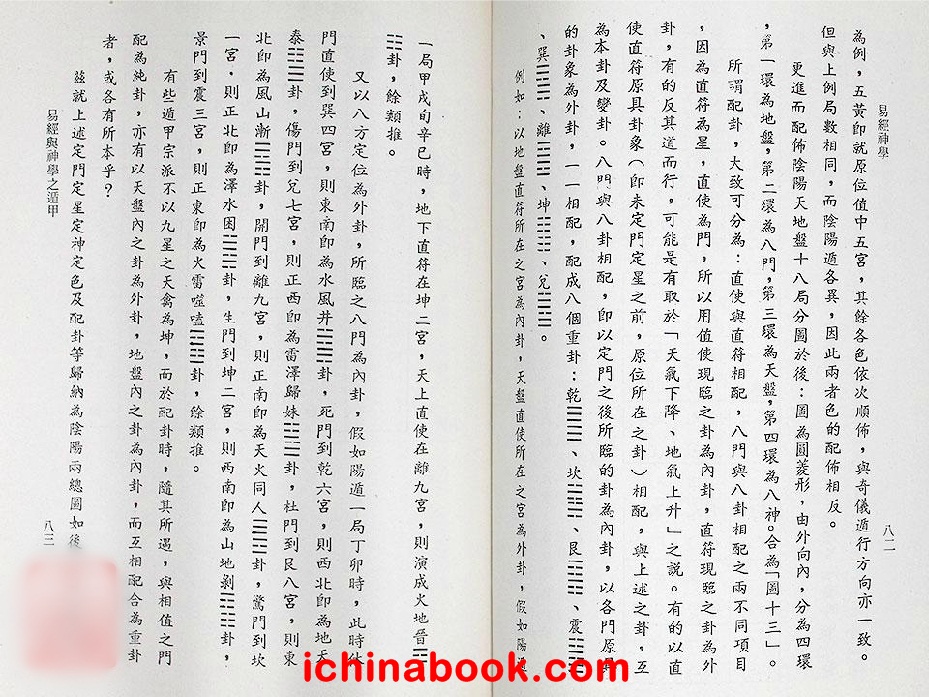 易經神學
為例,五黃即就原位值中五宮,其餘各色依次順佈,與奇儀遁行方向亦一致。
但與上例局數相同,而陰陽遁各異,因此兩者色的配佈相反。
更進而配佈陰陽天地盤十八局分圖於後:圖為圓菱形,由外向內,分為四環
,第一環為地盤,第二環為八門,第三環為天盤,第四環為八神。合為「圖十三」。
所謂配卦,大致可分為:直使與直符相配,八門與八卦相配之兩不同項目
,因為直符為星,直使為門,所以用值使現臨之卦為內卦,直符現臨之卦為外
卦,有的反其道而行,可能是有取於「天氣下降、地氣上升」之說。有的以直
使直符原具卦象(即未定門定星之前,原位所在之卦)相配,與上述之卦,互
為本卦及變卦。八門與八卦相配,即以定門之後所臨的卦為內卦,以各門原具
的卦象為外卦,一一相配,配成八個重卦:乾䷀、坎䷜、艮䷳、震䷲
、巽䷸、離䷝、坤䷁、兌䷹。
例如:以地盤直符所在之宮為內卦,天盤直使所在之宮為外卦,假如陽遁
八二
一局甲戌旬辛巳時,地下直符在坤二宮,天上直使在離九宮,則演成火地晉
卦,餘類推。
又以八方定位為外卦,所臨之八門為內卦,假如陽遁一局丁卯時,此時休
門直使到巽四宮,則東南即為水風井䷯卦,死門到乾六宮,則西北即為地天
泰䷊卦,傷門到兌七宮,則正西即為雷澤歸妹䷵卦,杜門到艮八宮,則東
北即為風山漸䷴卦,開門到離九宮,則正南即為天火同人䷌卦,驚門到坎
一宮,則正北即為澤水困䷮卦,生門到坤二宮,則西南即為山地剝䷖卦,
景門到震三宮,則正東即為火雷噬嗑䷔卦,餘類推。
有些遁甲宗派不以九星之天禽為坤,而於配卦時,隨其所遇,與相值之門
配為純卦,亦有以天盤內之卦為外卦,地盤內之卦為內卦,而互相配合為重卦
者,或各有所本乎?
茲就上述定門定星定神定色及配卦等歸納為陰陽兩總圖如後
易經與神學之遁甲
八三
ichinabook.com